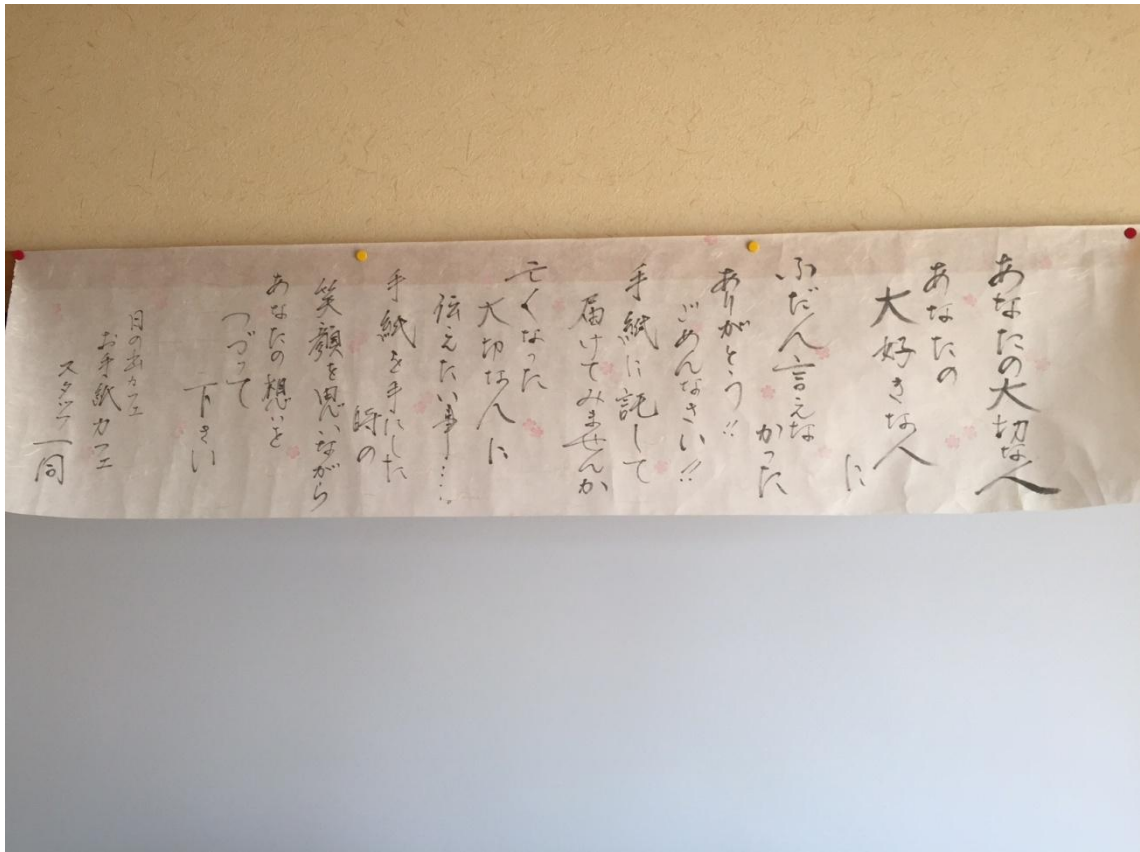 あなたの大切な人
あなたの
大好きな人
に
ふだん言えな
かった
ありがとう!!
ごめんなさい!!
手紙に託して
届けてみませんか
亡くなった
大切な人に
伝えたい事……
手紙を手にした
時の
笑顔を思いながら
あなたの想いを
つづって
下さい
日の出カフェ
お手紙カフェ
スタッフ一同